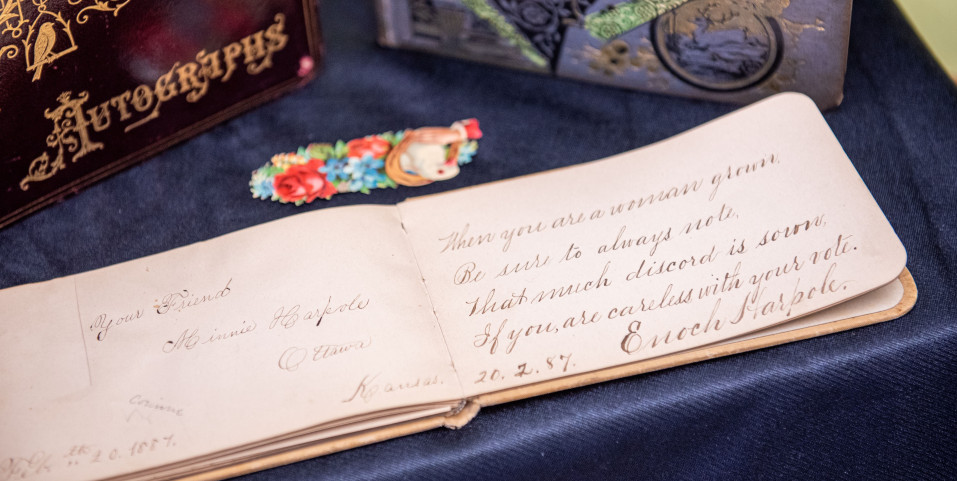 Autographs
Your Friend
Minnie Harpole
Ottawa
Kansas.
corinne
Feb. th 20.1887.
When you are a woman grown,
Be sure to always note,
That much discord is sown,
If you, are careless with your vote.
Enoch Harpole.
20.2.87.